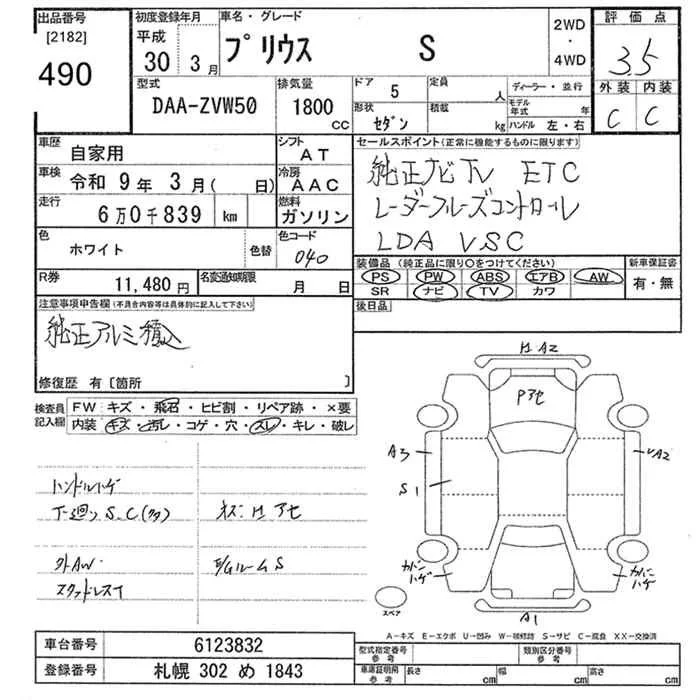 出品番号
[2182]
490
初度登録年月
平成
30 3月
車名・グレード
プリウス S
2WD
・
4WD
評価点
3.5
外装 内装
C C
型式
DAA-ZVW50
排気量
1800
CC
ドア 5
定員 人
形状
セダン
積載 kg
ディーラー・並行
モデル年式 年
ハンドル 左・右
車歴 自家用
シフト AT
車検 令和 9年 3月( 日)
冷房 AAC
走行
6万0千839 km
燃料
ガソリン
色
ホワイト
色替
色コード
040
R券 11,480円
名変通知期限
月 日
セールスポイント(正常に機能するものに限ります)
純正ナビ TV ETC
レーダークルーズコントロール
LDA VSC
装備品(純正品に限り○をつけてください)
PS PW ABS エアB AW
SR ナビ TV カワ
新車保証書
有・無
後日品
注意事項申告欄(不具合内容等は具体的に記入して下さい)
純正アルミ積込
修復歴 有〔箇所 〕
検査員記入欄
FW キズ・飛石・ヒビ割・リペア跡・×要
内装 キズ・汚レ・コゲ・穴・スレ・キレ・破レ
ハンドルハゲ
下廻り S、C(タタ)
外AW
スタッドレス
E/Gルーム S
A2
Pアセ
A3
S1
A2
カバーハゲ
カバーハゲ
A1
スペア
A-キズ E-エクボ U-凹み W-補修跡 S-サビ C-腐食 XX-交換済
車台番号 6123832
登録番号 札幌 302 め 1843
型式指定番号
参考
類別区分番号
参考
車庫証明用
参考
長さ cm
幅 cm
高さ cm